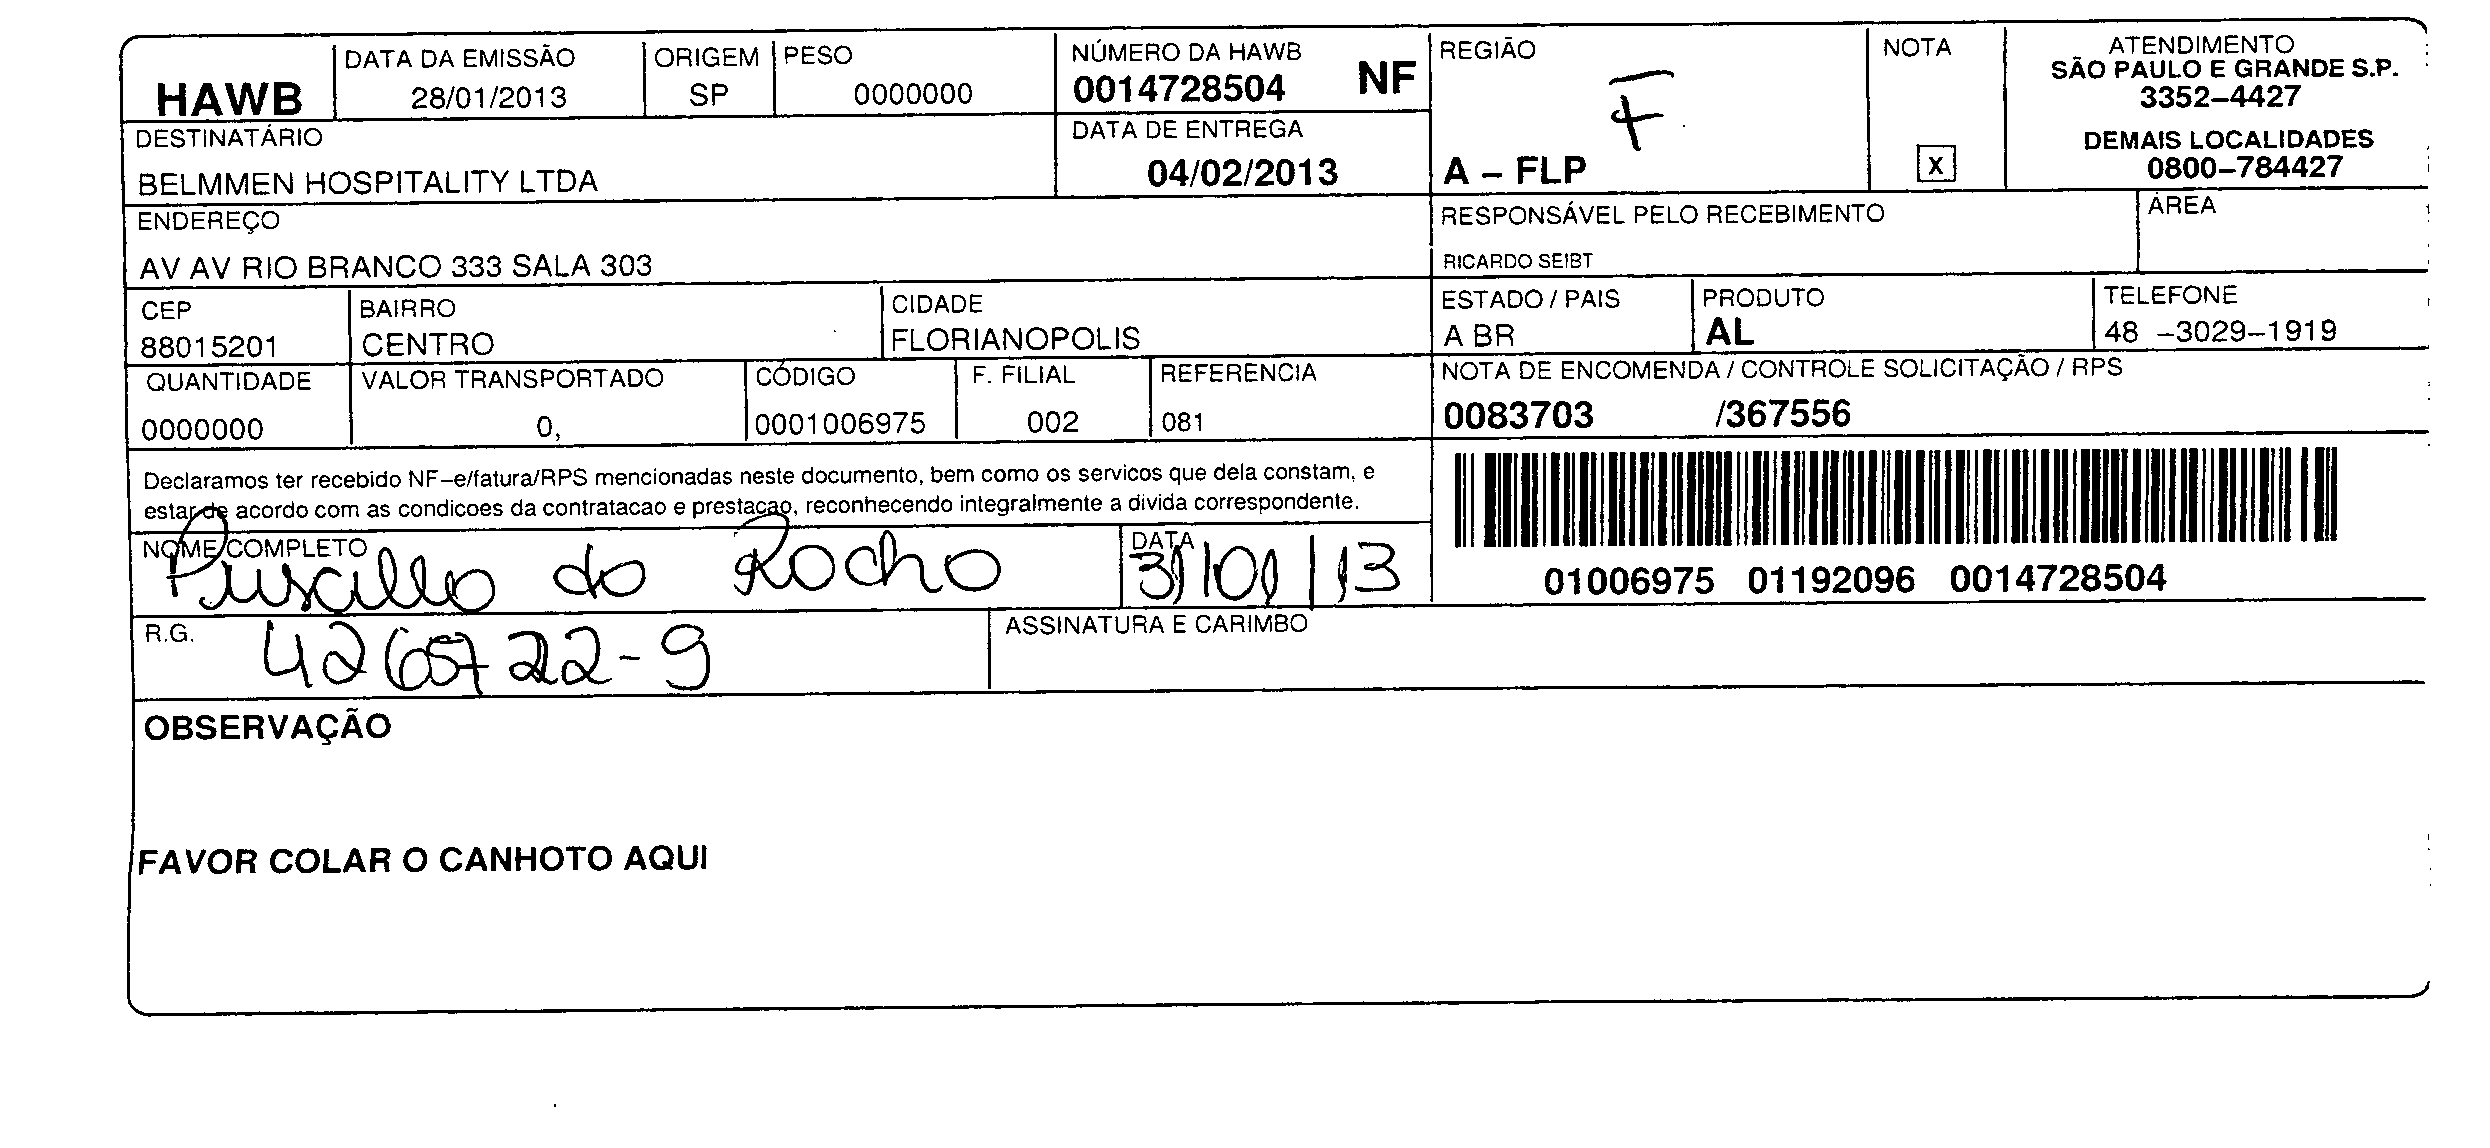 HAWB
DATA DA EMISSÃO
28/01/2013
ORIGEM
SP
PESO
0000000
NÚMERO DA HAWB
0014728504 NF
DATA DE ENTREGA
04/02/2013
REGIÃO
F
A – FLP
NOTA
X
ATENDIMENTO
SÃO PAULO E GRANDE S.P.
3352–4427
DEMAIS LOCALIDADES
0800–784427
DESTINATÁRIO
BELMMEN HOSPITALITY LTDA
ENDEREÇO
AV AV RIO BRANCO 333 SALA 303
RESPONSÁVEL PELO RECEBIMENTO
RICARDO SEIBT
ÁREA
CEP
88015201
BAIRRO
CENTRO
CIDADE
FLORIANOPOLIS
ESTADO / PAIS
A BR
PRODUTO
AL
TELEFONE
48 –3029–1919
QUANTIDADE
0000000
VALOR TRANSPORTADO
0,
CÓDIGO
0001006975
F. FILIAL
002
REFERENCIA
081
NOTA DE ENCOMENDA / CONTROLE SOLICITAÇÃO / RPS
0083703 /367556
Declaramos ter recebido NF–e/fatura/RPS mencionadas neste documento, bem como os servicos que dela constam, e
estar de acordo com as condicoes da contratacao e prestaçao, reconhecendo integralmente a divida correspondente.
NOME COMPLETO
Priscilla da Rocha
DATA
31/01/13
01006975 01192096 0014728504
R.G.
4265722-9
ASSINATURA E CARIMBO
OBSERVAÇÃO
FAVOR COLAR O CANHOTO AQUI